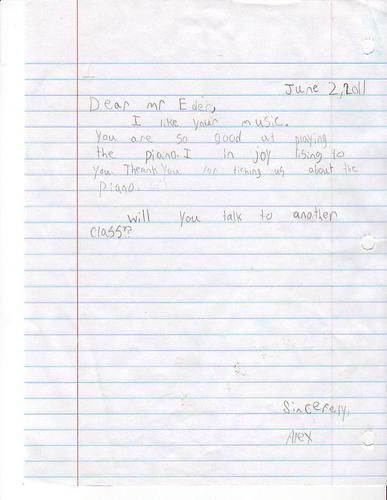 June 2, 2011
Dear mr Eder,
I like your music.
You are so good at playing
the piano. I in joy lising to
you. Theank You for tiching us about the
piano.
will you talk to another
class?
Sincerely,
Alex